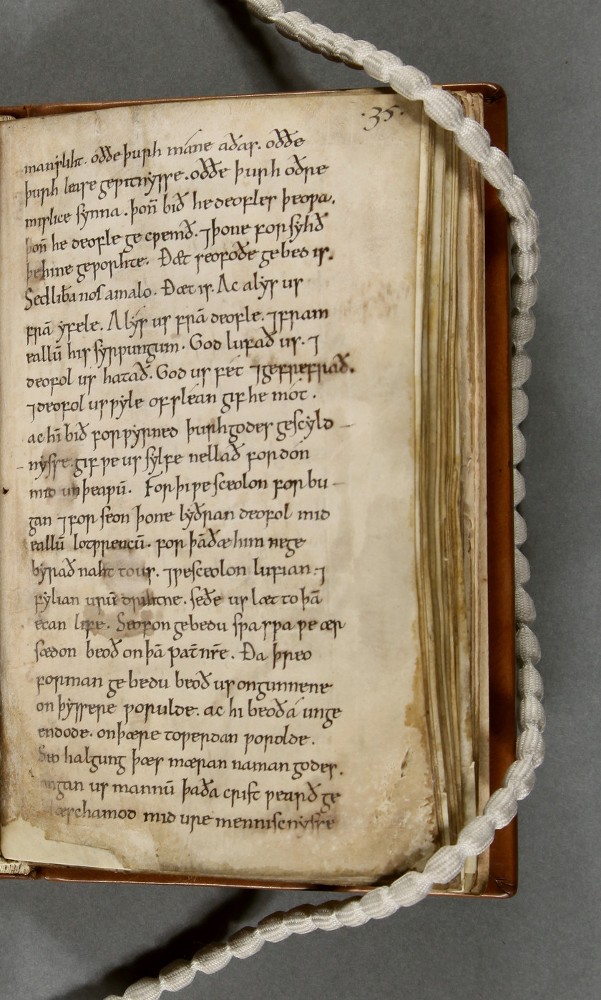 ·35·
mansliht. oððe þurh mane aðas. oððe
þurh lease gewitnysse. oððe þurh oðre
mislice synna. þoñ bið he deofles þeowa.
þoñ he deofle gecwemð. ⁊ þone forsyhð
þe hine geworhte. Ðæt seofoðe gebed is.
Sed libã nos a malo. Ðæt is. Ac alys us
frã yfele. Alys us frã deofle. ⁊ fram
eallũ his syrwungum. God lufað us. ⁊
deofol us hatað. God us fet ⁊ gefrefrað.
⁊ deofol us wyle ofslean gif he mot.
ac hĩ bið forwyrned þurh godes gescyld-
nysse. gif we us sylfe nellað fordon
mid unþeawũ. Forþi we sceolon forbu-
gan ⁊ forseon þone lyðran deofol mid
eallũ lotwrencũ. for þã ðe him ne ge
byrað naht to us. ⁊ we sceolon lufian. ⁊
fylian urũ drihtne. seðe us læt to þã
ecan life. Seofon gebedu swa swa we ær
sædon beoð on þã pat̃ nr̃e. Ða þreo
forman gebedu beoð us ongunnene
on þyssere worulde. ac hi beoð á unge
endode. on þære towerdan worolde.
Seo halgung þæs mæran naman godes.
ongan us mannũ þaða crist wearð ge
flæschamod mid ure menniscnysse